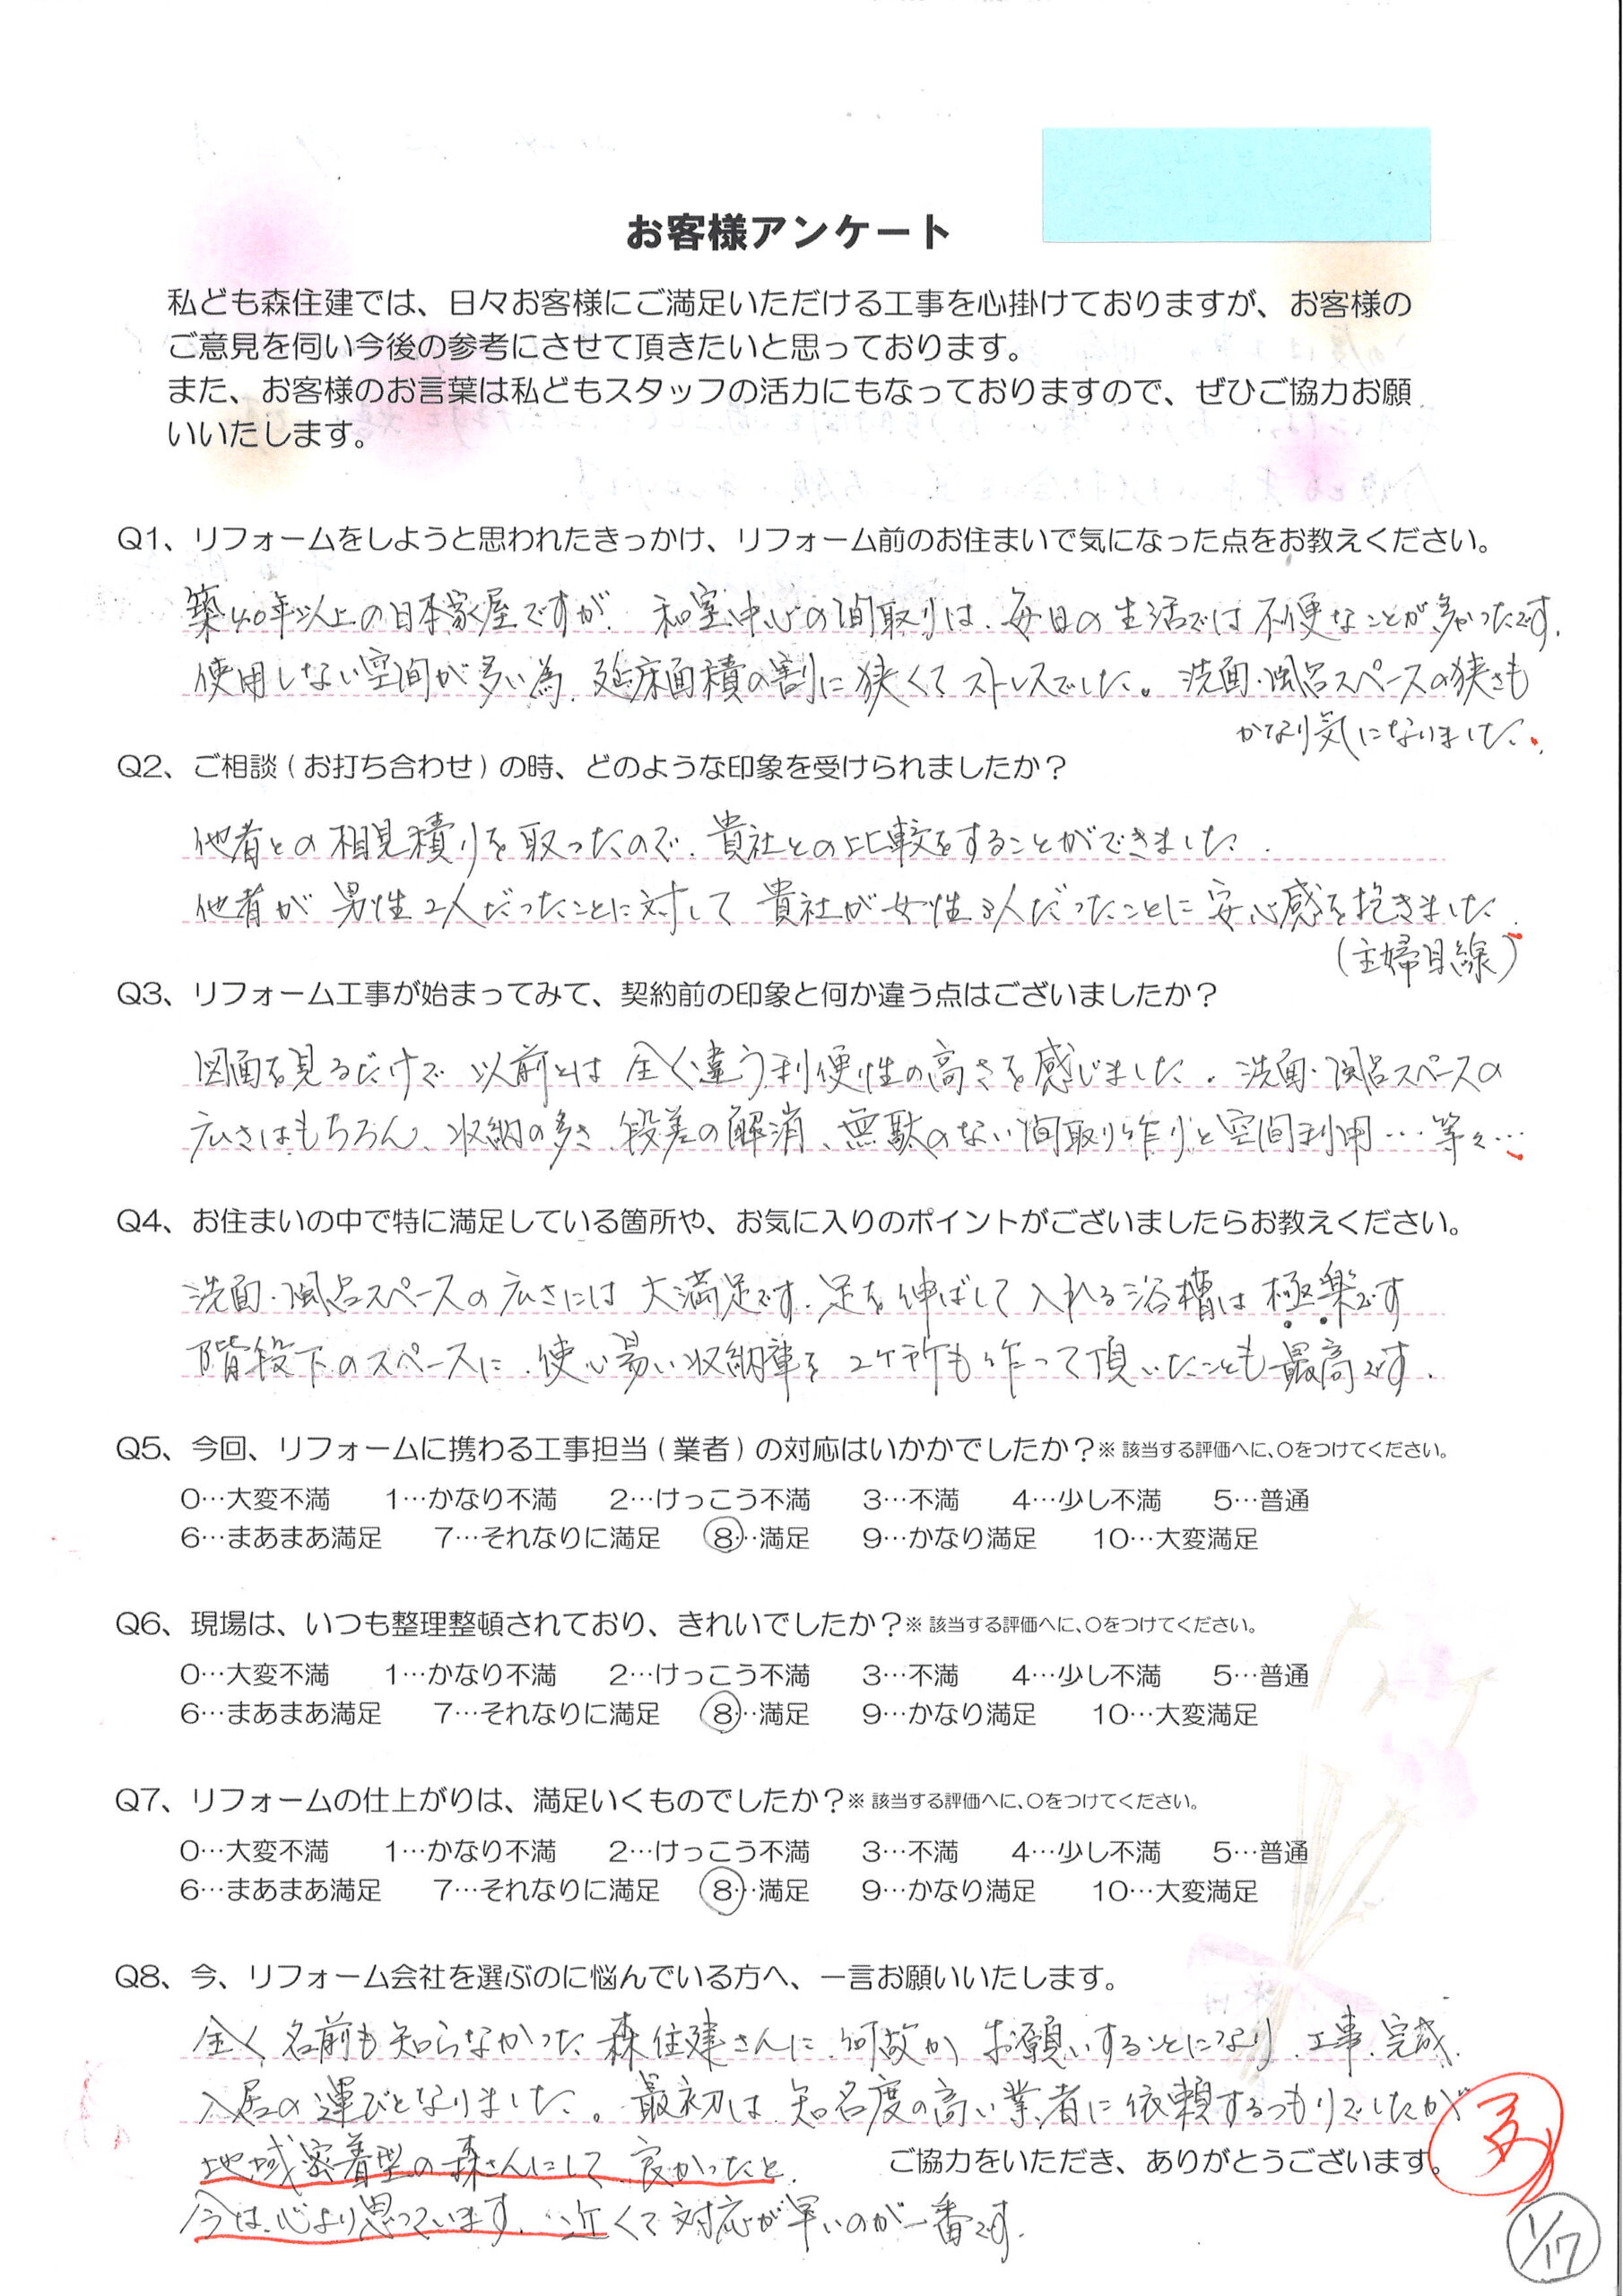 お客様アンケート
私ども森住建では、日々お客様にご満足いただける工事を心掛けておりますが、お客様の
ご意見を伺い今後の参考にさせて頂きたいと思っております。
また、お客様のお言葉は私どもスタッフの活力にもなっておりますので、ぜひご協力お願
いいたします。
Q1、リフォームをしようと思われたきっかけ、リフォーム前のお住まいで気になった点をお教えください。
築40年以上の日本家屋ですが、和室中心の間取りは、毎日の生活では不便なことが多かったです。
使用しない空間が多い為、延床面積の割に狭くてストレスでした。洗面・風呂スペースの狭さも
かなり気になりました。
Q2、ご相談(お打ち合わせ)の時、どのような印象を受けられましたか？
他者との相見積りを取ったので、貴社との比較をすることができました。
他者が男性2人だったことに対して貴社が女性3人だったことに安心感を抱きました
(主婦目線)
Q3、リフォーム工事が始まってみて、契約前の印象と何か違う点はございましたか？
図面を見るだけで以前とは全く違う利便性の高さを感じました。洗面・風呂スペースの
広さはもちろん、収納の多さ、段差の解消、無駄のない間取り作りと空間利用…等々…
Q4、お住まいの中で特に満足している箇所や、お気に入りのポイントがございましたらお教えください。
洗面・風呂スペースの広さには大満足です。足を伸ばして入れる浴槽は極楽です
階段下のスペースに、使い易い収納庫を2ケ所も作って頂いたことも最高です。
Q5、今回、リフォームに携わる工事担当(業者)の対応はいかかでしたか？※該当する評価へに、○をつけてください。
0…大変不満 1…かなり不満 2…けっこう不満 3…不満 4…少し不満 5…普通
6…まあまあ満足 7…それなりに満足 8…満足 9…かなり満足 10…大変満足
Q6、現場は、いつも整理整頓されており、きれいでしたか？※該当する評価へに、○をつけてください。
0…大変不満 1…かなり不満 2…けっこう不満 3…不満 4…少し不満 5…普通
6…まあまあ満足 7…それなりに満足 8…満足 9…かなり満足 10…大変満足
Q7、リフォームの仕上がりは、満足いくものでしたか？※該当する評価へに、○をつけてください。
0…大変不満 1…かなり不満 2…けっこう不満 3…不満 4…少し不満 5…普通
6…まあまあ満足 7…それなりに満足 8…満足 9…かなり満足 10…大変満足
Q8、今、リフォーム会社を選ぶのに悩んでいる方へ、一言お願いいたします。
全く名前も知らなかった森住建さんに、何故かお願いすることになり、工事、完成、
入居の運びとなりました。最初は知名度の高い業者に依頼するつもりでしたが
地域密着型の森さんにして良かったと、
ご協力をいただき、ありがとうございます。
今は心より思っています。近くて対応が早いのが一番です。
1/17